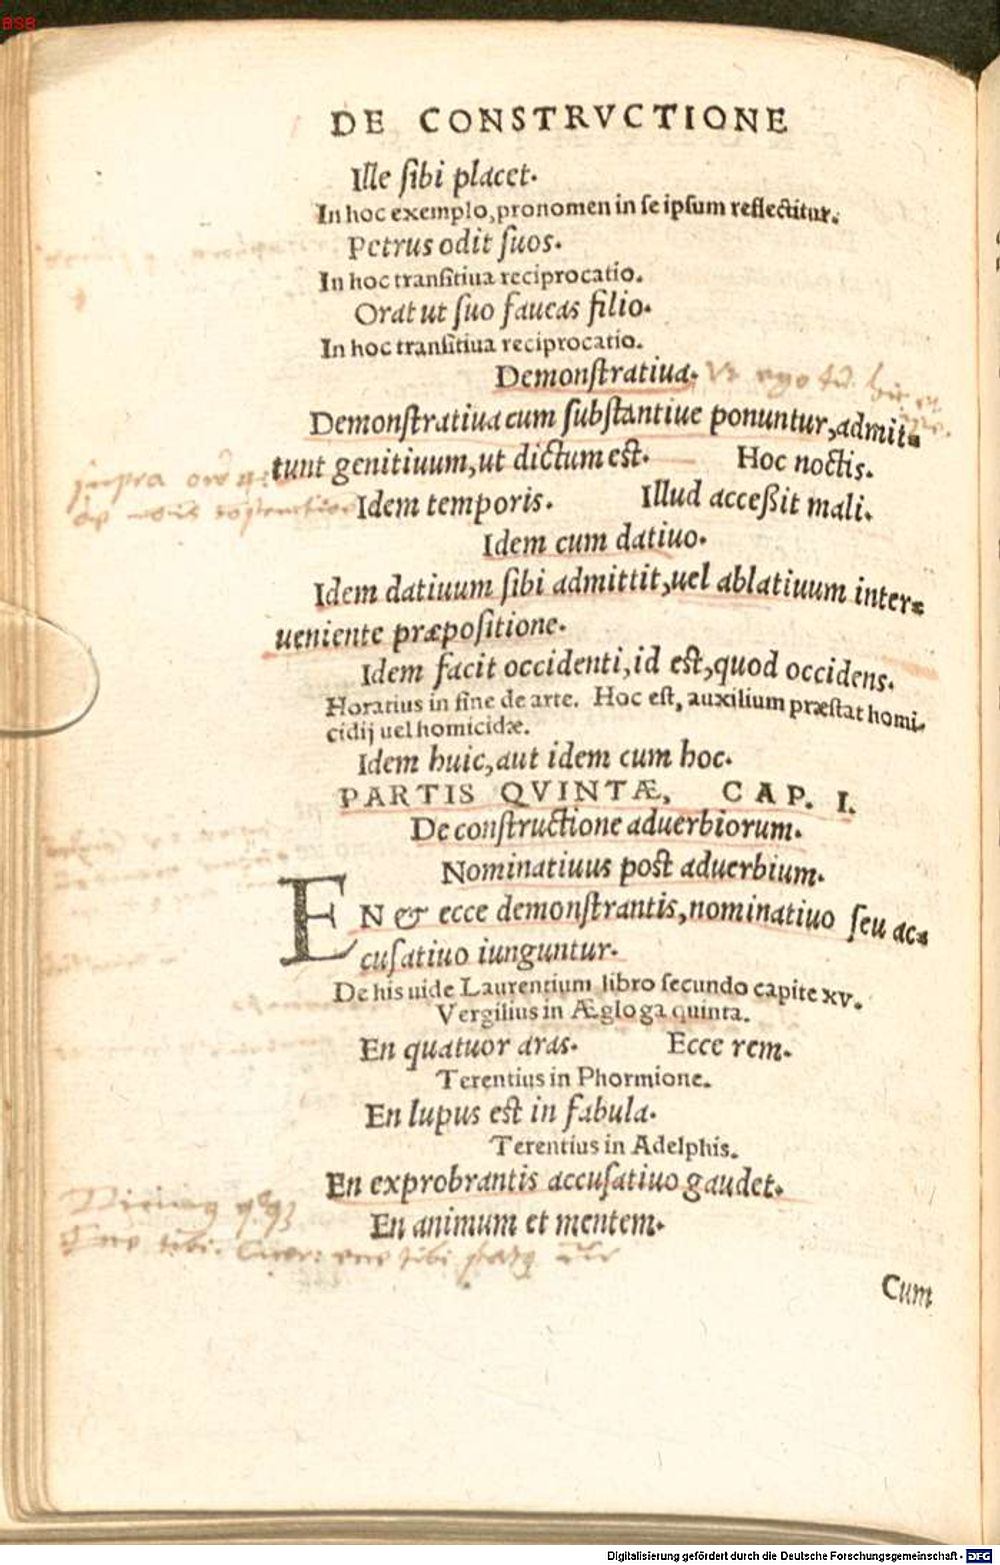 BSB
DE CONSTRVCTIONE
Ille ſibi placet.
In hoc exemplo, pronomen in ſe ipſum reflectitur.
Petrus odit ſuos.
In hoc tranſitiua reciprocatio.
Orat ut ſuo faueas filio.
In hoc tranſitiua reciprocatio.
Demonſtratiua. Vt ego tu hic et
Demonſtratiua cum ſubſtantiue ponuntur, admit=
tunt genitiuum, ut dictum eſt. Hoc noctis.
Idem temporis. Illud acceſsit mali.
Idem cum datiuo.
Idem datiuum ſibi admittit, uel ablatiuum inter=
ueniente præpoſitione.
Idem facit occidenti, id eſt, quod occidens.
Horatius in fine de arte. Hoc eſt, auxilium præſtat homi-
cidij uel homicidæ.
Idem huic, aut idem cum hoc.
PARTIS QVINTÆ, CAP. I.
De conſtructione aduerbiorum.
Nominatiuus poſt aduerbium.
EN & ecce demonſtrantis, nominatiuo ſeu ac=
cuſatiuo iunguntur.
De his uide Laurentium libro ſecundo capite xv.
Vergilius in Ægloga quinta.
En quatuor aras. Ecce rem.
Terentius in Phormione.
En lupus eſt in fabula.
Terentius in Adelphis.
En exprobrantis accuſatiuo gaudet.
En animum et mentem.
Cum
Digitalisierung gefördert durch die Deutsche Forschungsgemeinschaft - DFG